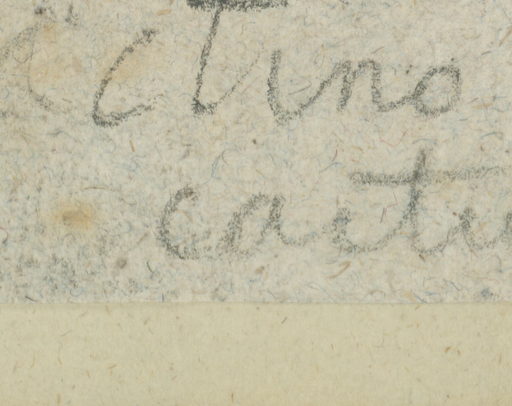 ctino
cactu